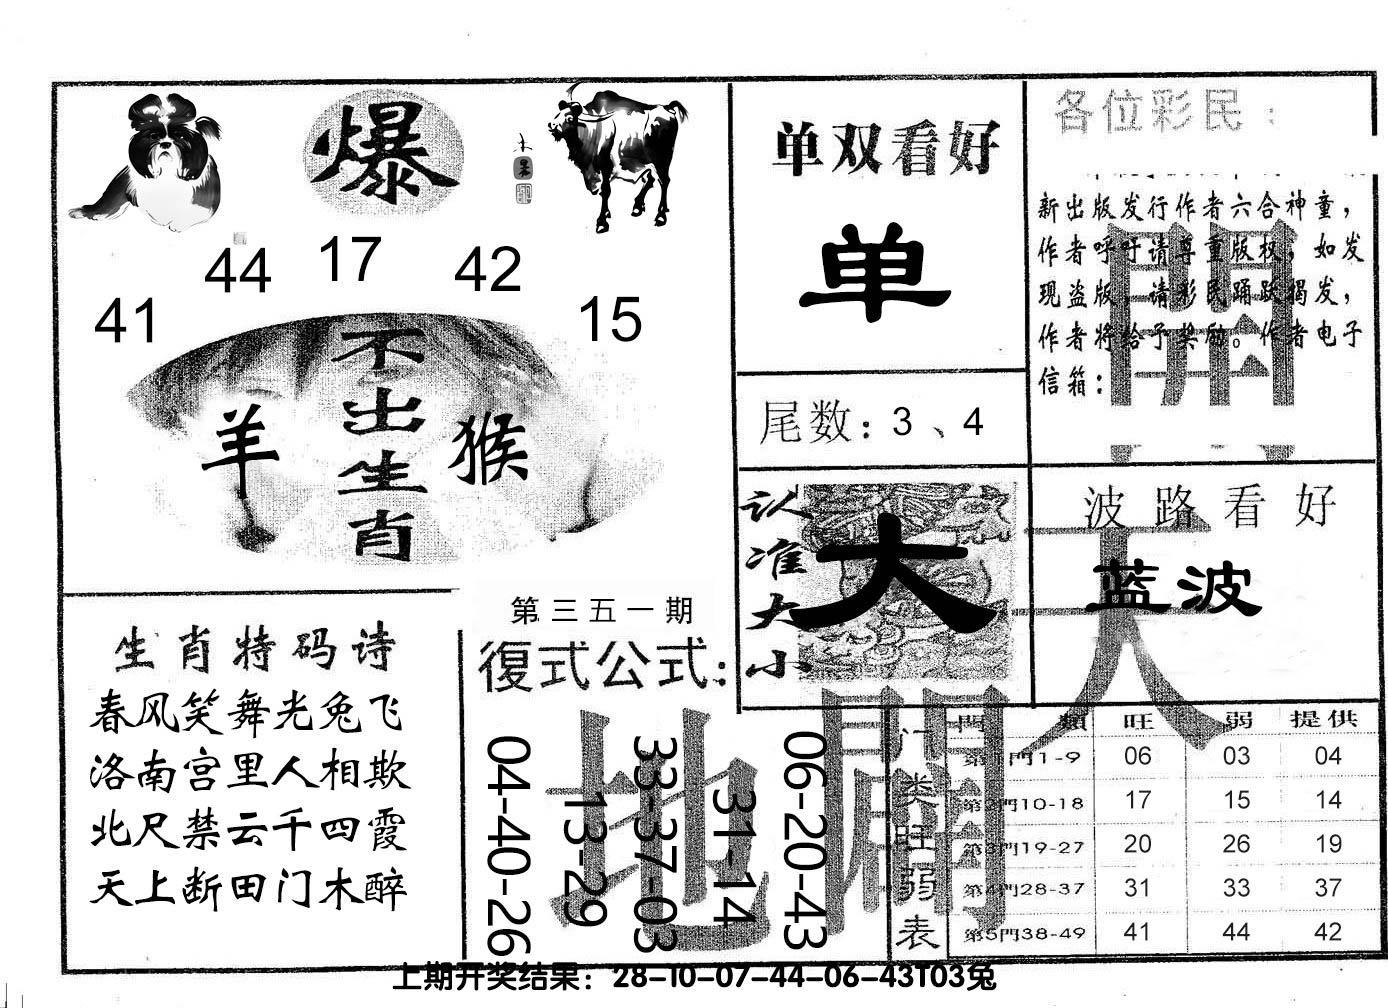 爆
41
44
17
42
15
不出生肖
羊
猴
单双看好
单
尾数：3、4
各位彩民：
新出版发行作者六合神童，
作者呼吁请尊重版权，如发
现盗版，请彩民踊跃揭发，
作者将给予奖励。作者电子
信箱：
认准大小
大
波路看好
蓝波
生肖特码诗
春风笑舞光兔飞
洛南宫里人相欺
北尺禁云千四霞
天上断田门木醉
第三五一期
復式公式：
04-40-26
13-29
33-37-03
31-14
06-20-43
天
開
地
闢
门类旺弱表
門類 旺 弱 提供
第1門1-9 06 03 04
第2門10-18 17 15 14
第3門19-27 20 26 19
第4門28-37 31 33 37
第5門38-49 41 44 42
上期开奖结果：28-10-07-44-06-43T03兔